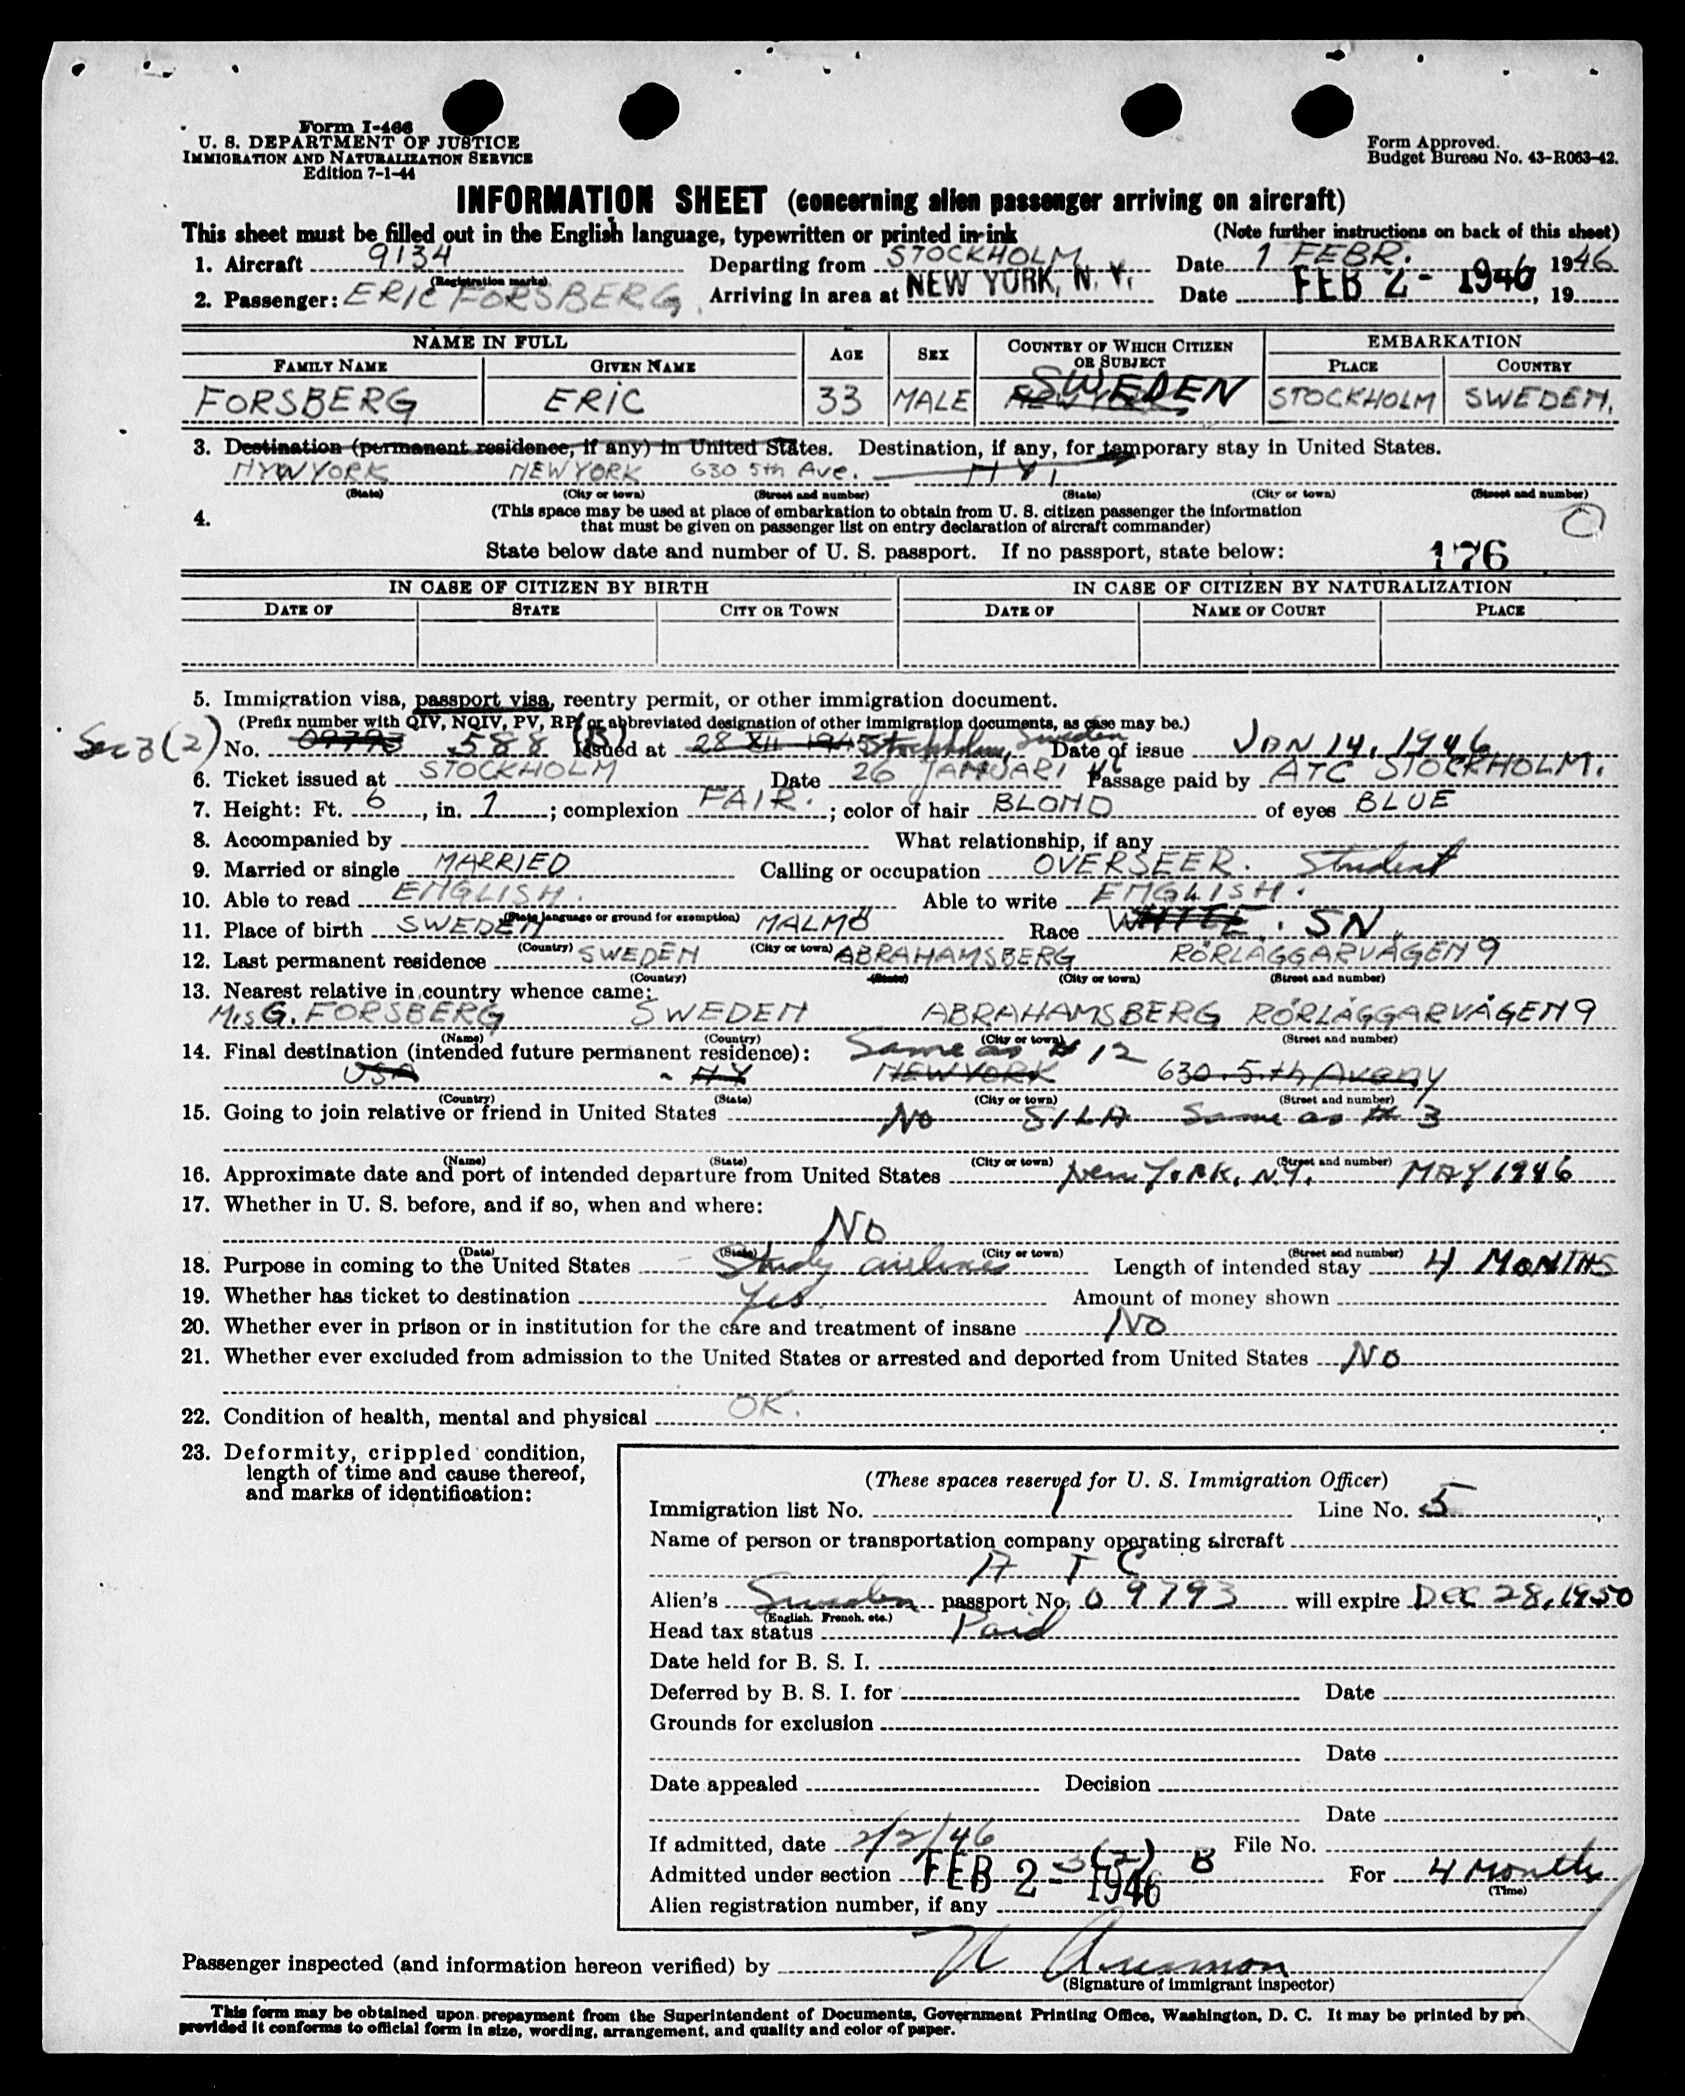 Form I-466
U. S. DEPARTMENT OF JUSTICE
IMMIGRATION AND NATURALIZATION SERVICE
Edition 7-1-44
Form Approved.
Budget Bureau No. 43-R063-42.
INFORMATION SHEET (concerning alien passenger arriving on aircraft)
This sheet must be filled out in the English language, typewritten or printed in ink
(Note further instructions on back of this sheet)
1. Aircraft 9134 Departing from STOCKHOLM Date 1 FEBR. 1946
(Registration marks)
2. Passenger: ERIC FORSBERG. Arriving in area at NEW YORK, N. Y. Date FEB 2 - 1946, 19
NAME IN FULL AGE SEX COUNTRY OF WHICH CITIZEN OR SUBJECT EMBARKATION
FAMILY NAME GIVEN NAME PLACE COUNTRY
FORSBERG ERIC 33 MALE NEW YORK SWEDEN STOCKHOLM SWEDEN.
3. Destination (permanent residence, if any) in United States. Destination, if any, for temporary stay in United States.
NYWYORK NEWYORK 630 5th Ave. N Y
(State) (City or town) (Street and number) (State) (City or town) (Street and number)
4. (This space may be used at place of embarkation to obtain from U. S. citizen passenger the information
that must be given on passenger list on entry declaration of aircraft commander)
State below date and number of U. S. passport. If no passport, state below: 176
IN CASE OF CITIZEN BY BIRTH IN CASE OF CITIZEN BY NATURALIZATION
DATE OF STATE CITY OR TOWN DATE OF NAME OF COURT PLACE
5. Immigration visa, passport visa, reentry permit, or other immigration document.
(Prefix number with QIV, NQIV, PV, RP, or abbreviated designation of other immigration documents, as case may be.)
Sec 3(2) No. 09793 588 (B) Issued at 28 XII 1945 Stockholm, Sweden Date of issue JAN 14. 1946
6. Ticket issued at STOCKHOLM Date 26 JANUARI 46 Passage paid by ATC STOCKHOLM.
7. Height: Ft. 6, in. 1; complexion FAIR.; color of hair BLOND of eyes BLUE
8. Accompanied by What relationship, if any
9. Married or single MARRIED Calling or occupation OVERSEER. Student
10. Able to read ENGLISH. Able to write ENGLISH.
(State language or ground for exemption)
11. Place of birth SWEDEN MALMÖ Race WHITE. SN
(Country) (City or town)
12. Last permanent residence SWEDEN ABRAHAMSBERG RÖRLÄGGARVÄGEN 9
(Country) (State) (City or town) (Street and number)
13. Nearest relative in country whence came:
Mrs G. FORSBERG SWEDEN ABRAHAMSBERG RÖRLÄGGARVÄGEN 9
(Name) (Country) (City or town) (Street and number)
14. Final destination (intended future permanent residence): Same as # 12
USA NY NEWYORK 630. 5.th Aveny
(Country) (State) (City or town) (Street and number)
15. Going to join relative or friend in United States No SILA Same as # 3
(Name) (State) (City or town) (Street and number)
16. Approximate date and port of intended departure from United States New York, N.Y. MAY 1946
17. Whether in U. S. before, and if so, when and where:
No
(Date) (State) (City or town) (Street and number)
18. Purpose in coming to the United States Study airlines Length of intended stay 4 MONTHS
19. Whether has ticket to destination Yes. Amount of money shown
20. Whether ever in prison or in institution for the care and treatment of insane No
21. Whether ever excluded from admission to the United States or arrested and deported from United States No
22. Condition of health, mental and physical OK.
23. Deformity, crippled condition,
length of time and cause thereof,
and marks of identification:
(These spaces reserved for U. S. Immigration Officer)
Immigration list No. 1 Line No. 5
Name of person or transportation company operating aircraft
A T C
Alien's Sweden passport No. 09793 will expire DEC 28, 1950
(English, French, etc.)
Head tax status Paid
Date held for B. S. I.
Deferred by B. S. I. for Date
Grounds for exclusion
Date
Date appealed Decision
Date
If admitted, date 2/2/46 File No.
Admitted under section 3(2) B For 4 Months
FEB 2 - 1946
(Time)
Alien registration number, if any
Passenger inspected (and information hereon verified) by
(Signature of immigrant inspector)
This form may be obtained upon prepayment from the Superintendent of Documents, Government Printing Office, Washington, D. C. It may be printed by
provided it conforms to official form in size, wording, arrangement, and quality and color of paper.